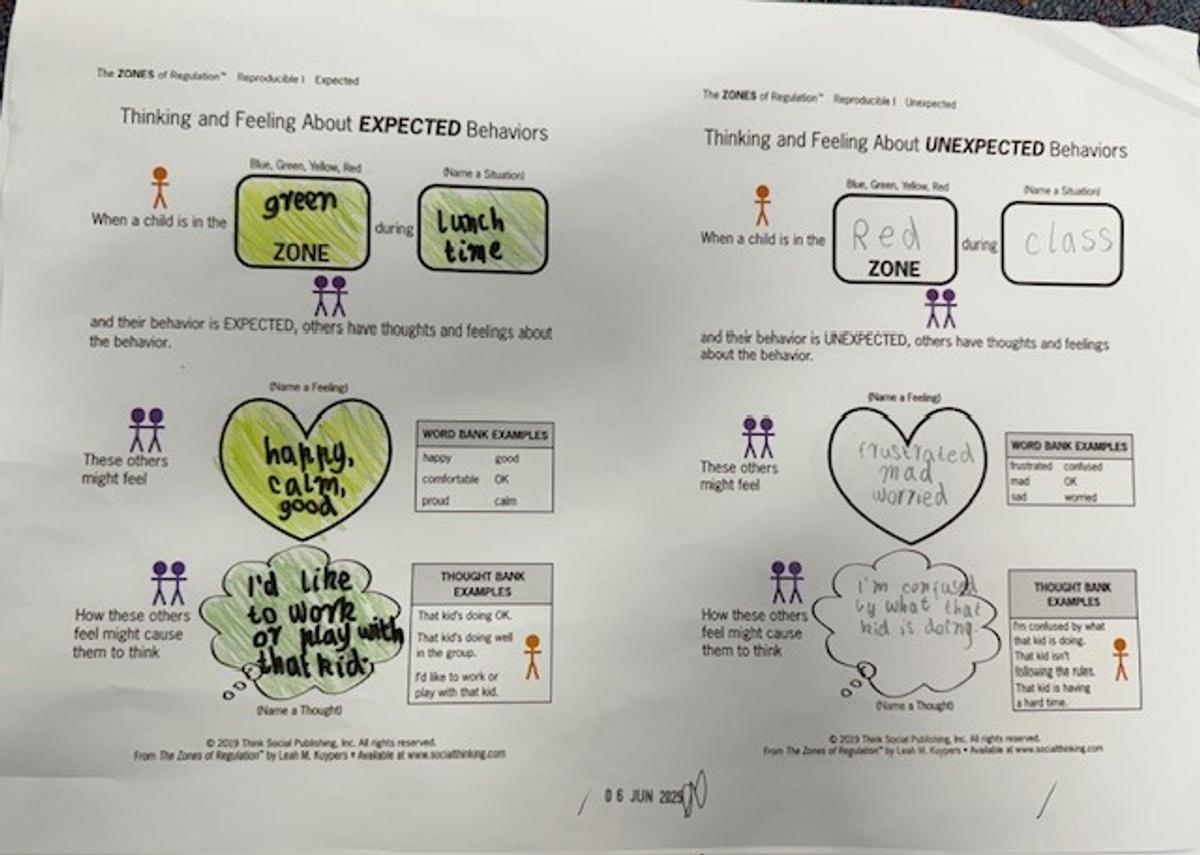 The ZONES of Regulation™ Reproducible I Expected
Thinking and Feeling About EXPECTED Behaviors
Blue, Green, Yellow, Red
(Name a Situation)
When a child is in the
green
ZONE
during
Lunch
time
and their behavior is EXPECTED, others have thoughts and feelings about
the behavior.
(Name a Feeling)
These others
might feel
happy,
calm,
good
WORD BANK EXAMPLES
happy good
comfortable OK
proud calm
How these others
feel might cause
them to think
I'd like
to work
or play with
that kid.
(Name a Thought)
THOUGHT BANK
EXAMPLES
That kid's doing OK.
That kid's doing well
in the group.
I'd like to work or
play with that kid.
© 2019 Think Social Publishing, Inc. All rights reserved.
From The Zones of Regulation™ by Leah M. Kuypers • Available at www.socialthinking.com
The ZONES of Regulation™ Reproducible I Unexpected
Thinking and Feeling About UNEXPECTED Behaviors
Blue, Green, Yellow, Red
(Name a Situation)
When a child is in the
Red
ZONE
during
class
and their behavior is UNEXPECTED, others have thoughts and feelings
about the behavior.
(Name a Feeling)
These others
might feel
frustrated
mad
worried
WORD BANK EXAMPLES
frustrated confused
mad OK
sad worried
How these others
feel might cause
them to think
I'm confused
by what that
kid is doing.
(Name a Thought)
THOUGHT BANK
EXAMPLES
I'm confused by what
that kid is doing.
That kid isn't
following the rules.
That kid is having
a hard time.
© 2019 Think Social Publishing, Inc. All rights reserved.
From The Zones of Regulation™ by Leah M. Kuypers • Available at www.socialthinking.com
06 JUN 2025